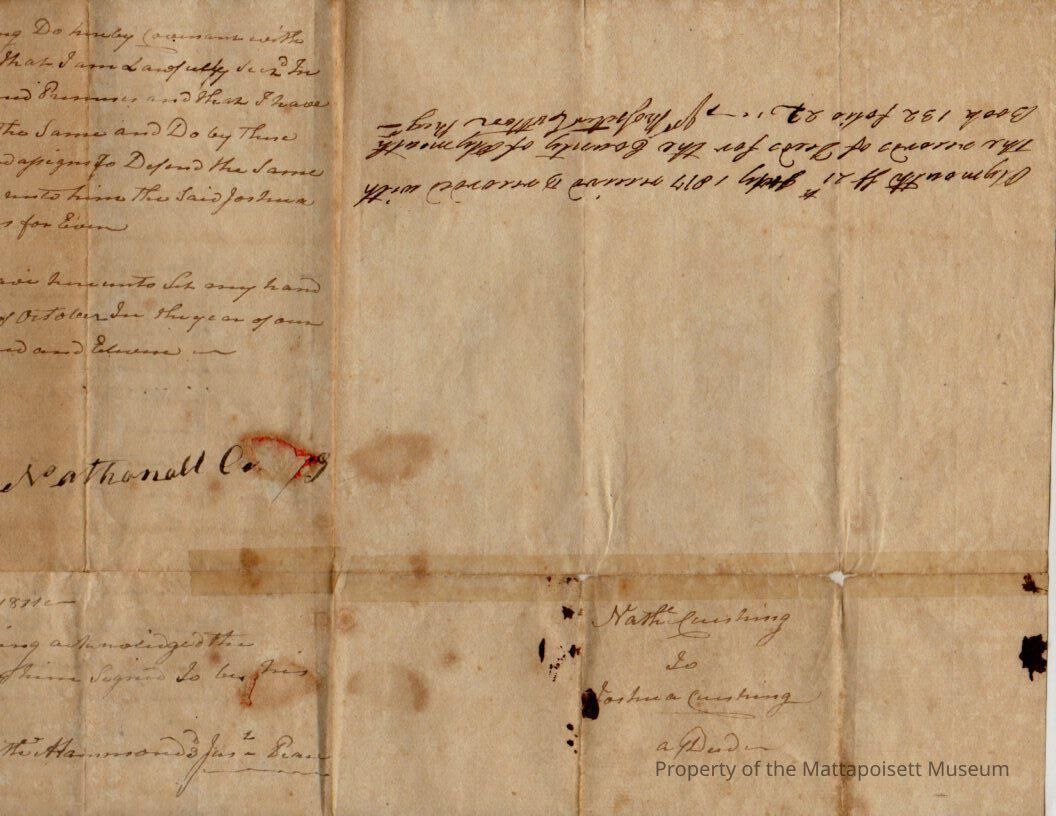 ng Do hereby Covenant with
that I am Lawfully Seizd In
Premises and that I have
the Same and Do by these
assigns to Defend the Same
unto him the Said Joshua
s for Ever
have hereunto Set my hand
of October In the year of our
and Eleven
Nathanall
1811
ing acknoledged the
him Signed To be his
Hammond Jus Peace
Plymouth Ss 21st July 1817 received & recorded with
the records of Deeds for the County of Plymouth
Book 132 folio 22
Nathl Cushing
To
Joshua Cushing
a Deed
Property of the Mattapoisett Museum